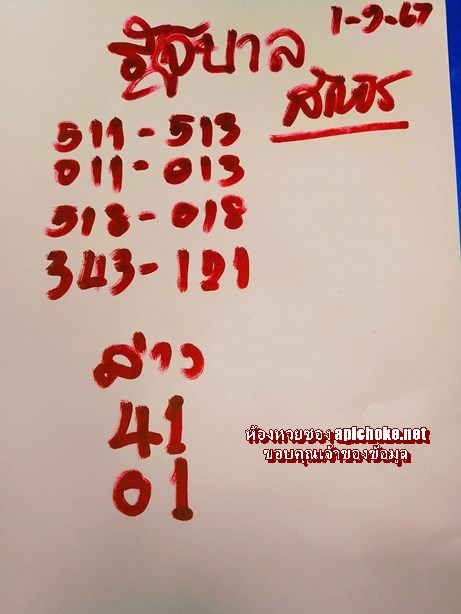 1-9-67
รัฐบาล
511-513
011-013
518-018
343-121
ล่าง
41
01
ห้องหวยซอง apichoke.net
ขอบคุณเจ้าของข้อมูล